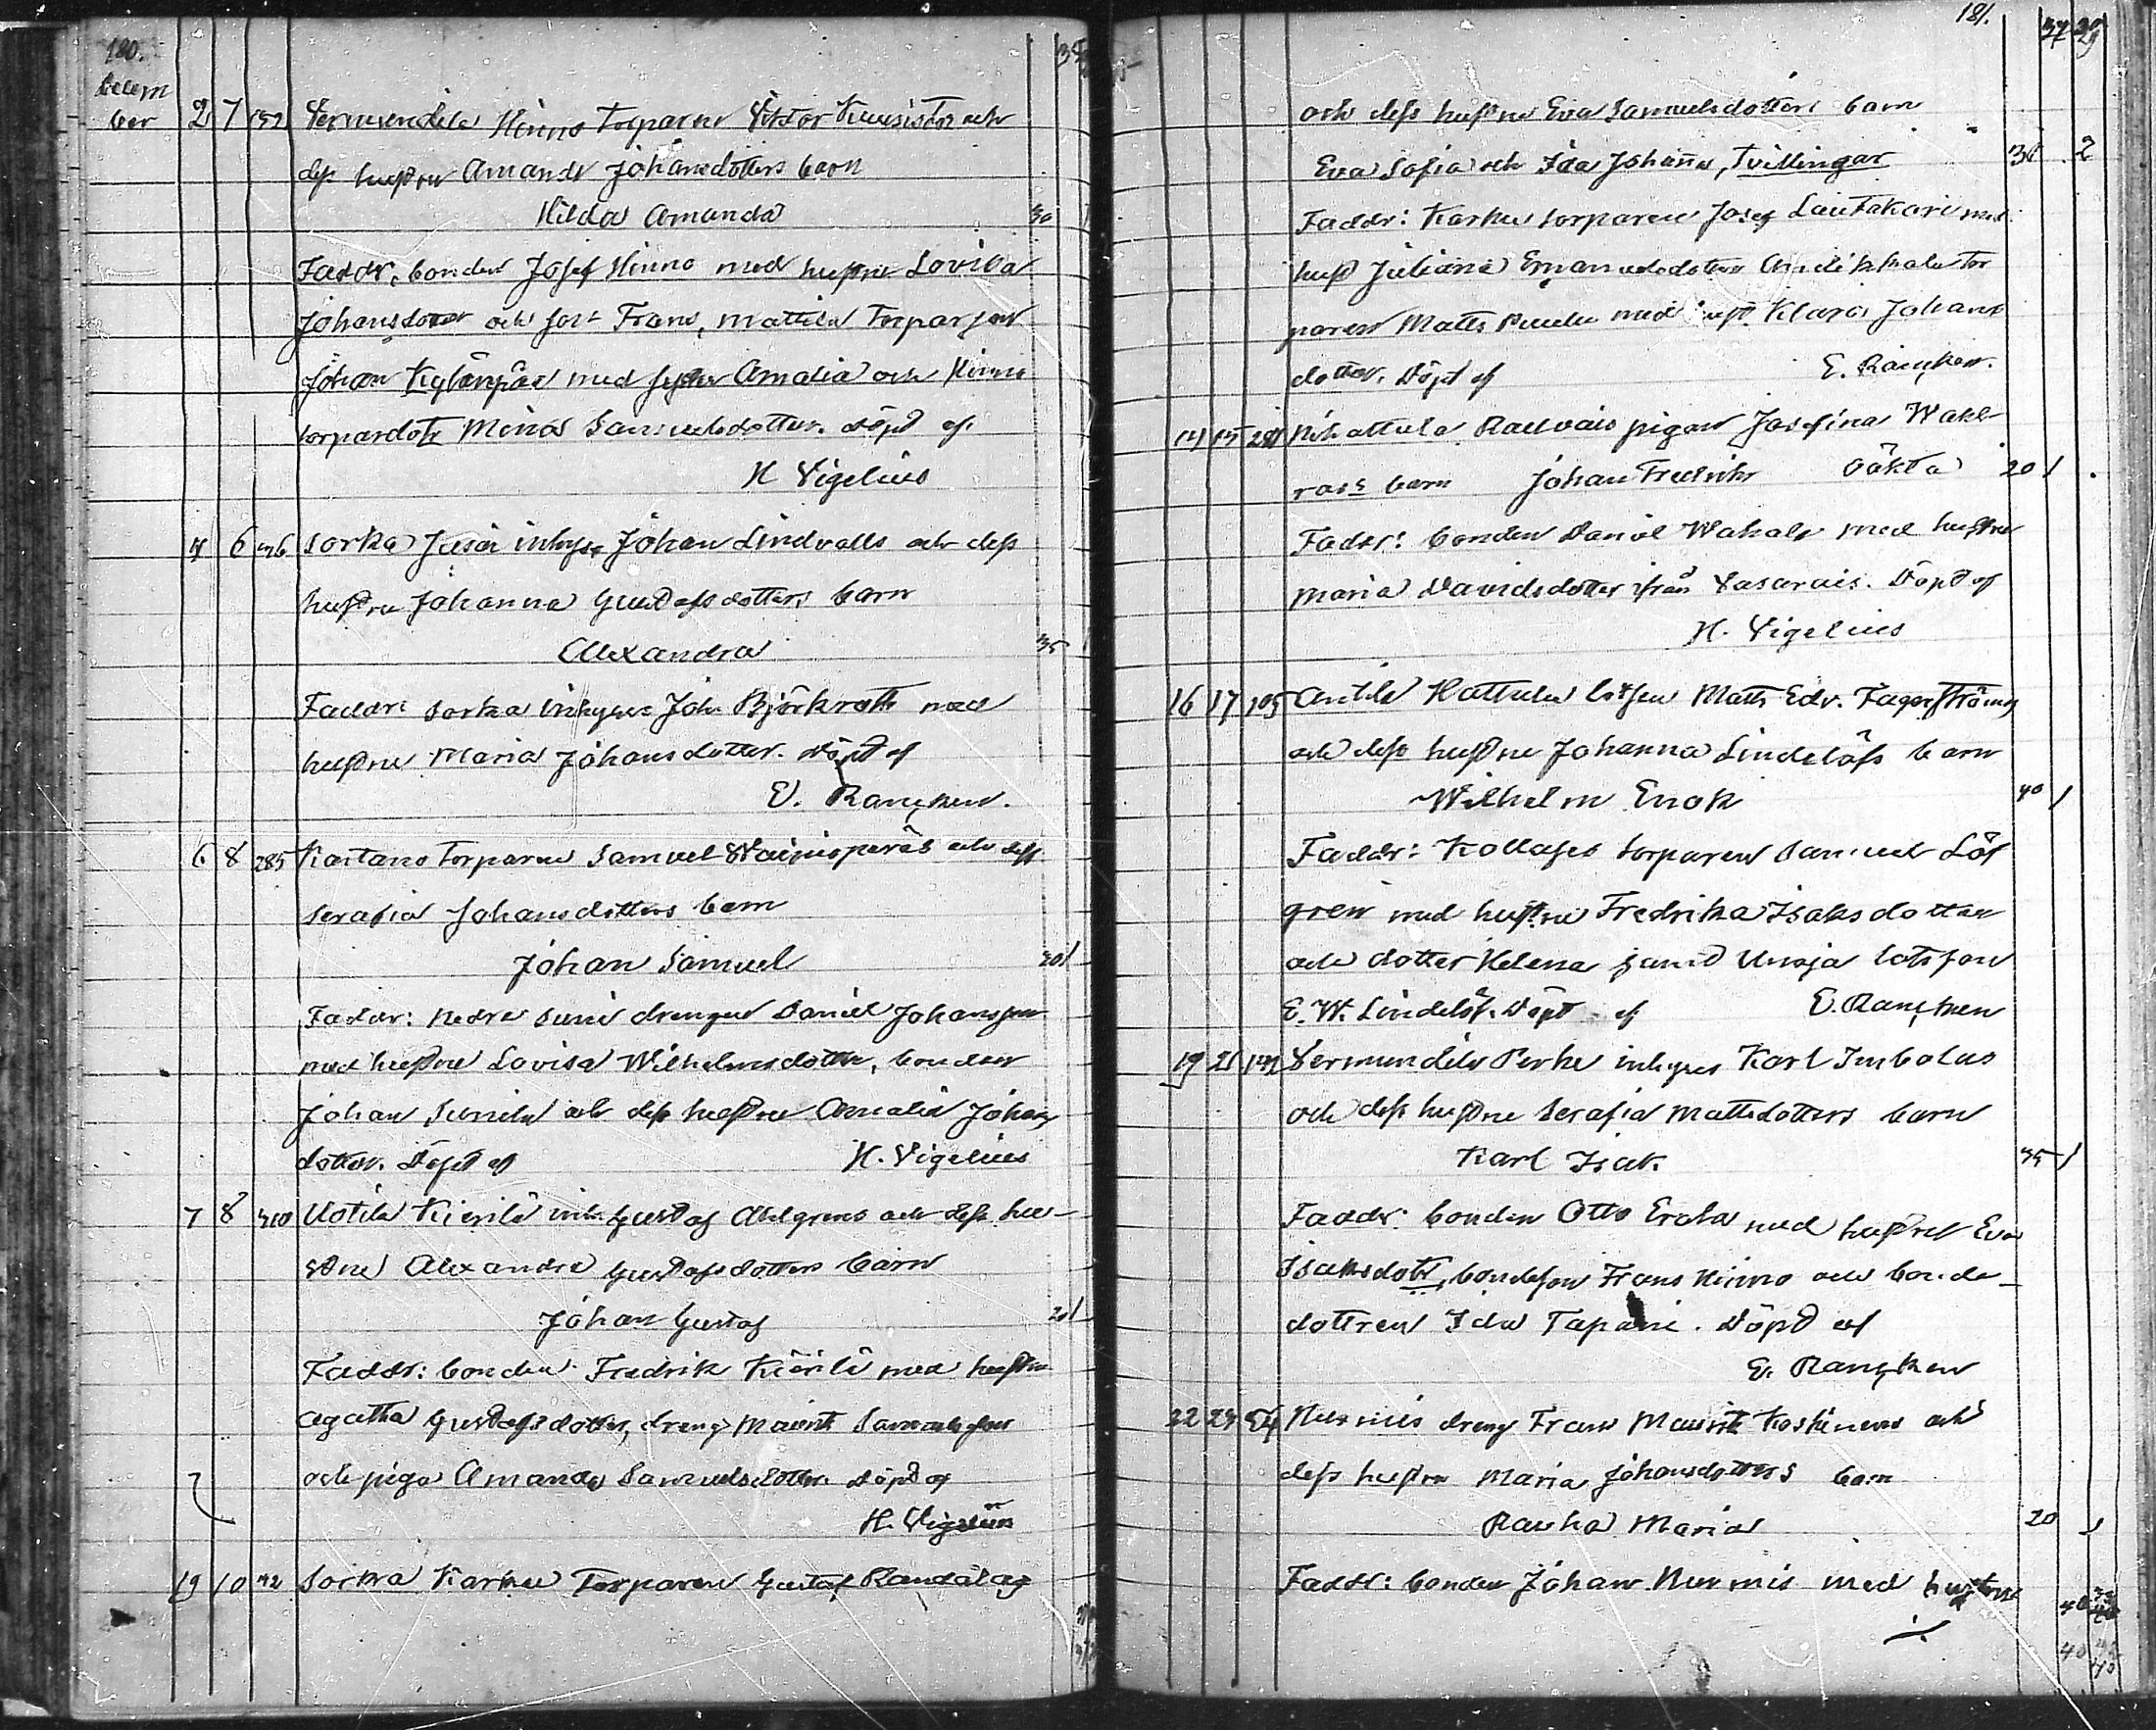 180.
Decem
ber 2 7 152 Vermundila Hinno Torparen Viktor Kuusistos och
dess hustru Amanda Johansdotters barn
Hilda Amanda 30
Faddr. bonden Josef Hinno med hustru Lovisa
Johansdotter och Frans, Mattila Torparson
Johan med Amalia och Hinno
torpardotr Mina Samuelsdotter. döpt af.
H Vigelius
4 6 Sorka inhys. Johan Lindvalls och dess
hustru Johanna Gustafsdotters barn
Alexandra 35
Faddr: Sorka inhyses Joh. Björkroth med
hustru Maria Johansdotter. Döpt af
E. Rancken.
6 8 285 Kartano Torparen Samuel och dess
Serafia Johansdotters barn
Johan Samuel 30 /
Faddr: Nedre drengen Daniel Johansson
med hustru Lovisa Wilhelmsdotter, bonden
Johan och dess hustru Amalia Johans
dotter. Döpt af H. Vigelius
7 8 310 Uotila Kierilä inh. Gustaf Ahlgrens och dess hu-
stru Alexandra Gustafsdotters barn
Johan Gustaf 20 /
Faddr: bonden Fredrik Kierilä med hustru
Agatha Gustafsdotter, dreng Maurits Samuelsson
och piga Amanda Samuelsdotter Döpt af
H. Vigelius
19 10 42 Sorka Karhu Torparen Gustaf
181.
37 29
och dess hustru Eva Samuelsdotters barn
Eva Sofia och Ida Johanna, Tvillingar 30 . 2
Faddr: Karhu torparen Josef Lautakari med
hust Juliana Emanuelsdotter tor
paren Matts med hust. Klara Johans
dotter. Döpt af E. Rancken.
14 15 281 Rallvais pigan Josefina Wahl-
roos barn Johan Fredrik oäkta 20 / .
Faddr: bonden Daniel Wahala med hustru
Maria Davidsdotter ifrån Vasarais. Döpt af
H. Vigelius
16 17 105 Antila Hattula lotsen Matts Edv. Fagerströms
och dess hustru Johanna Lindelöfs barn
Wilhelm Enok 40 /
Faddr: Kollases torparen Samuel Löf
gren med hustru Fredrika Isaksdotter
och dotter Helena samt lotsson
E. W. Lindelöf. Döpt af E. Rancken
19 21 Vermundila Perko inhyses Karl Imbolas
och dess hustru Serafia Mattsdotters barn
Karl Isak. 35 /
Faddr: bonden Otto Erola med hustru Eva
Isaksdotr, bondeson Frans Hinno och bonde-
dottren Ida Tapani. Döpt af
E. Rancken
22 23 54 Nurmis dreng Frans Maurits Koskinens och
dess hustru Maria Johansdotters barn
Rauha Maria 20 /
Faddr: bonden Johan Nurmis med hustru
./.